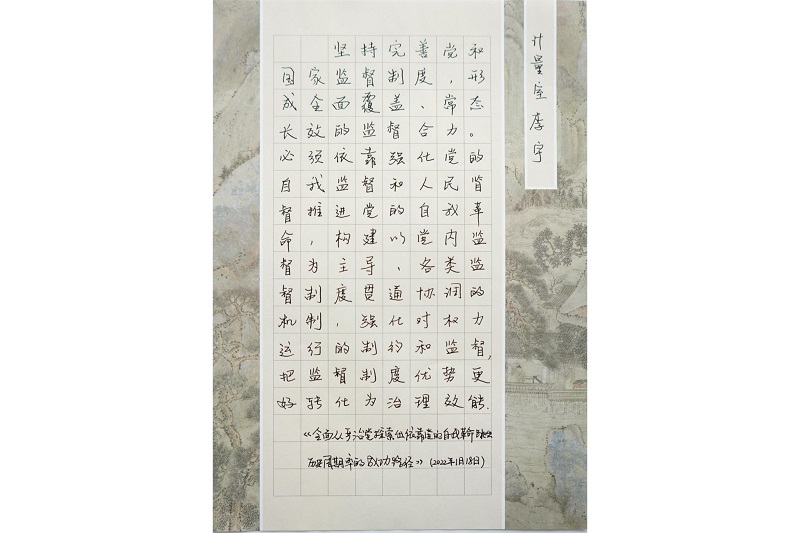 坚持完善党和
国家监督制度，形
成全面覆盖、常态
长效的监督合力。
必须依靠强化党的
自我监督和人民的监
督推进党的自我革
命，构建以党内监
督为主导、各类监
督制度贯通协调的
机制，强化对权力
运行的制约和监督，
把监督制度优势更
好转化为治理效能.
《全面从严治党探索出依靠党的自我革命跳出
历史周期率的成功路径》（2022年1月18日）
计量室 李宇